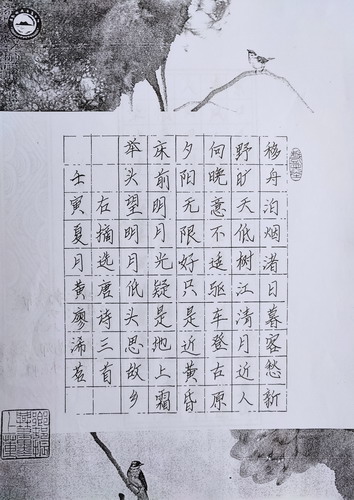 移舟泊烟渚日暮客愁新
野旷天低树江清月近人
向晚意不适驱车登古原
夕阳无限好只是近黄昏
床前明月光疑是地上霜
举头望明月低头思故乡
右摘选唐诗三首
壬寅夏月黄廖浠茗